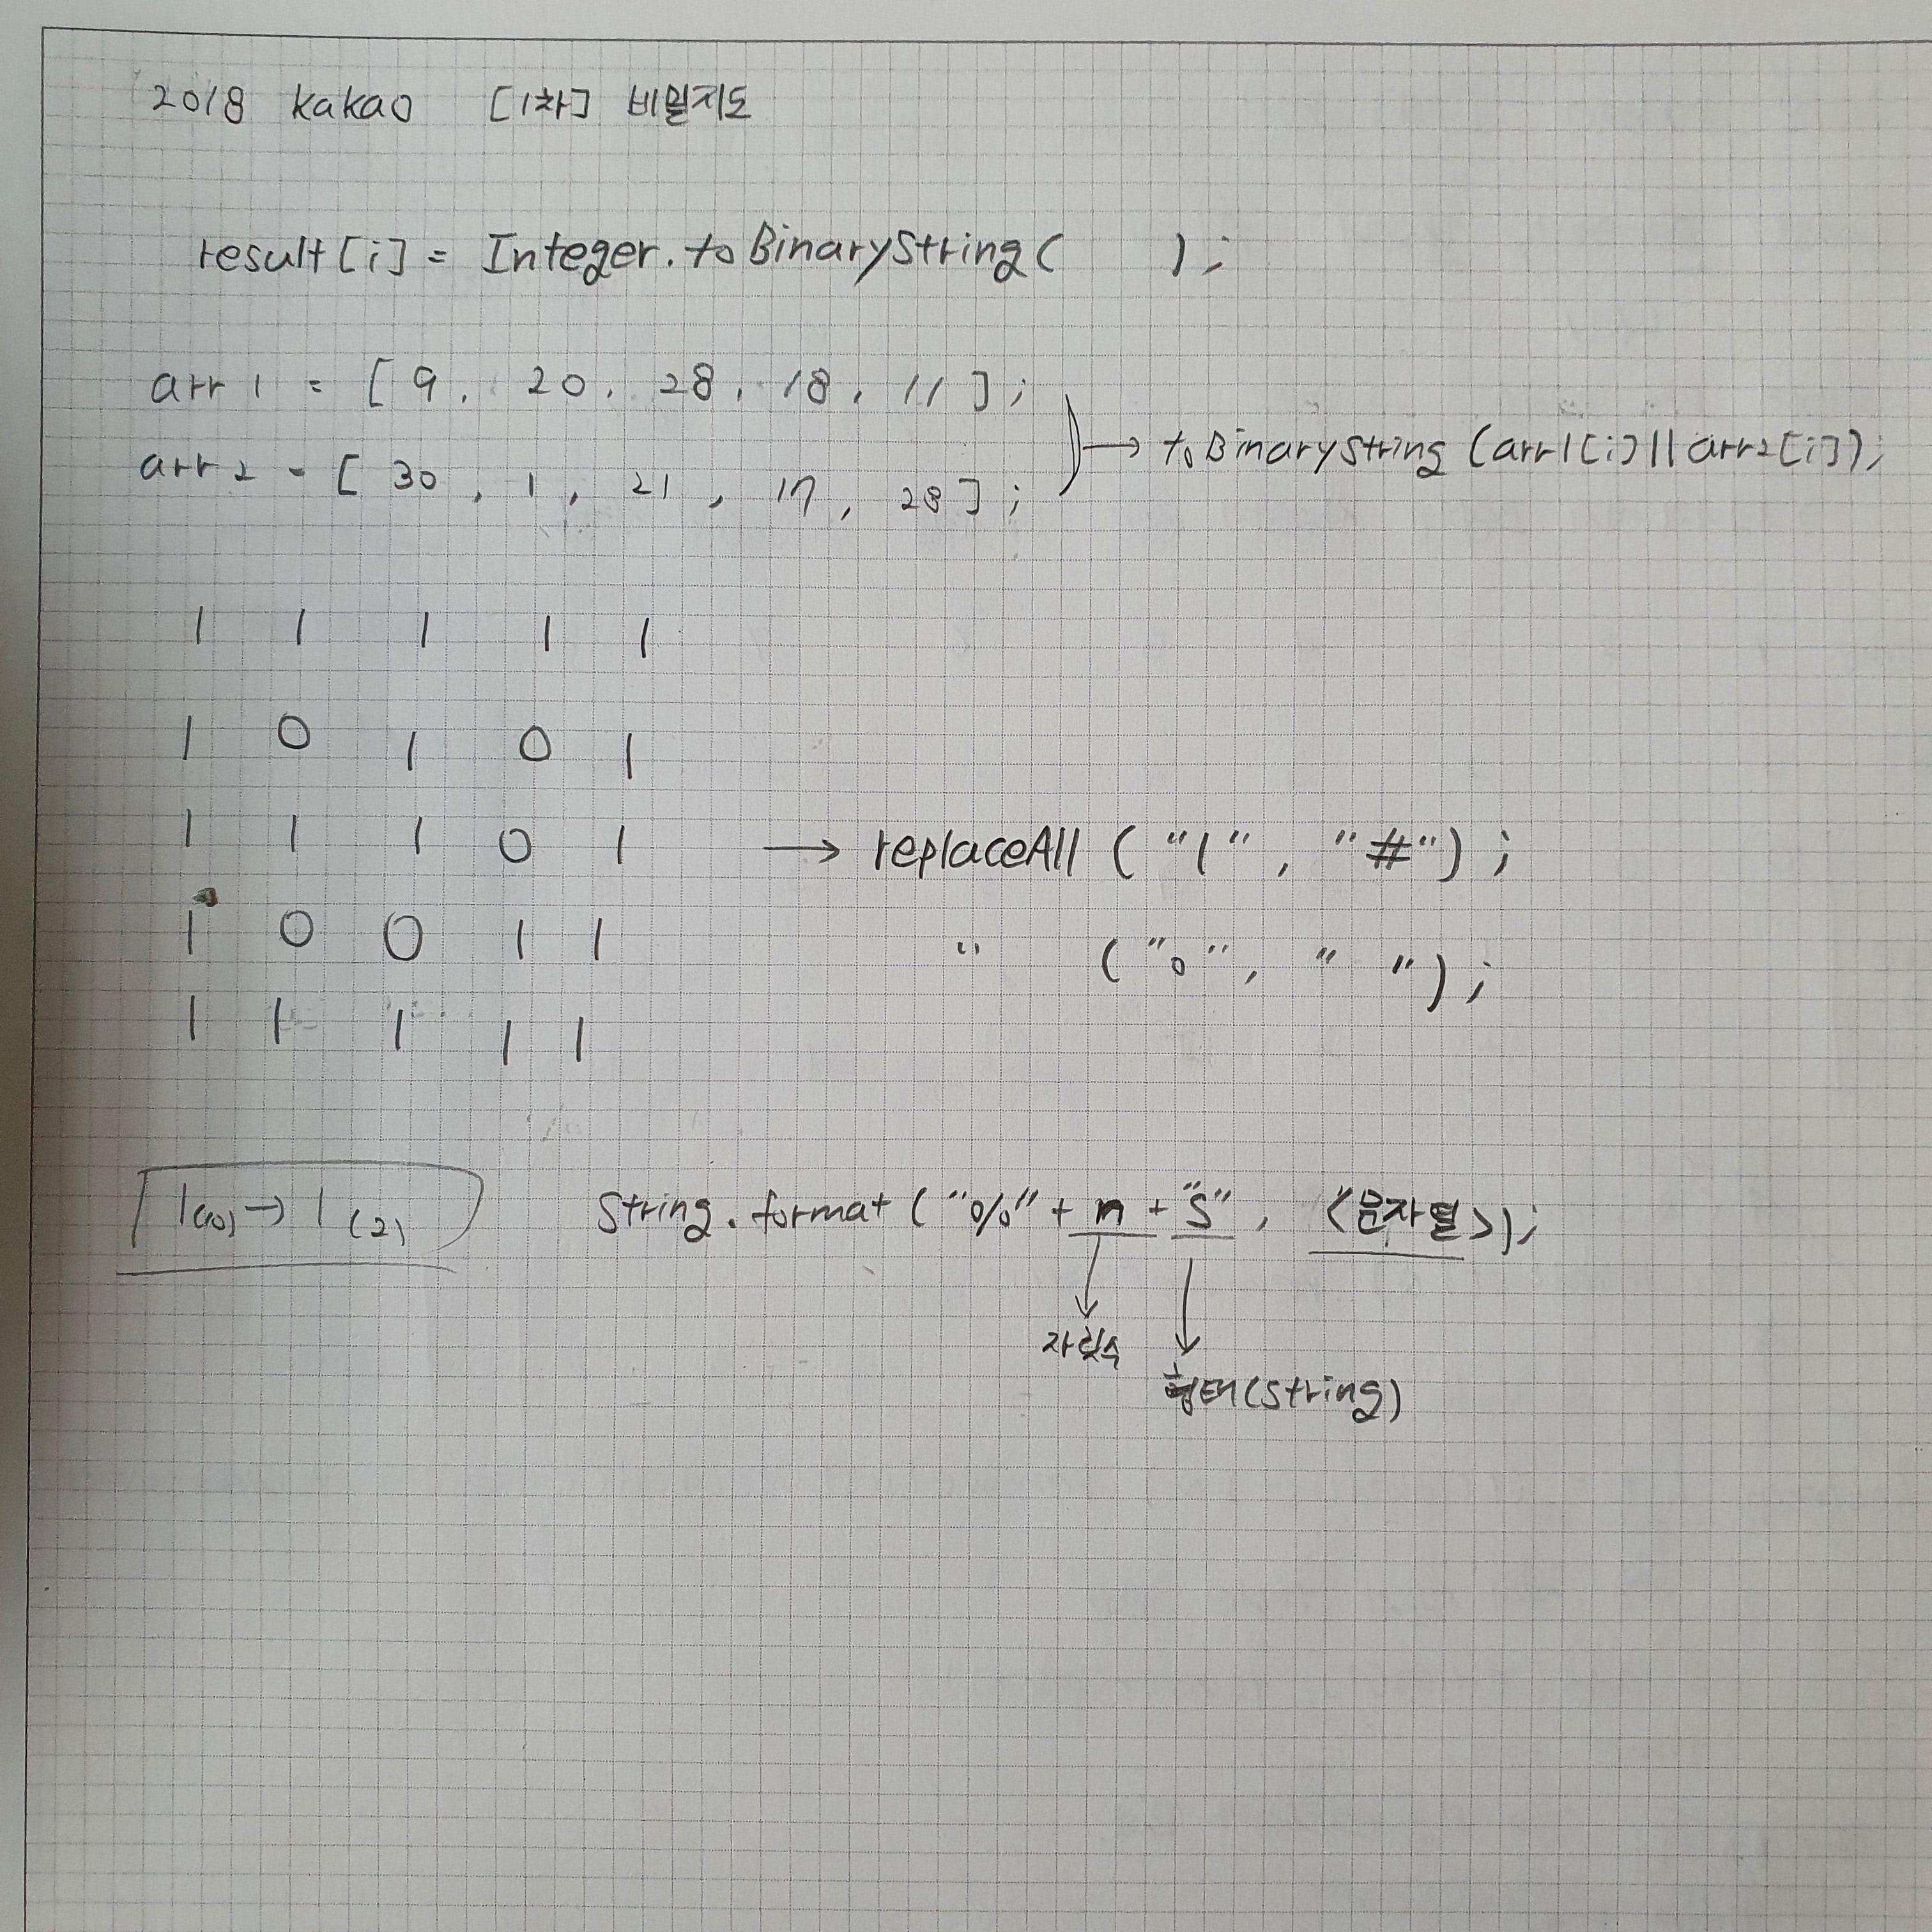 2018 kakao [1차] 비밀지도
result[i] = Integer.toBinaryString( );
arr1 = [ 9, 20, 28, 18, 11 ];
arr2 = [ 30, 1, 21, 17, 28 ];
→ toBinaryString (arr1[i] || arr2[i]);
1 1 1 1 1
1 0 1 0 1
1 1 1 0 1 → replaceAll ( "1", "#");
1 0 0 1 1 " ("0", " ");
1 1 1 1 1
1(10) → 1(2) String.format ( "%" + n + "s", <문자열>);
자릿수
형태(string)